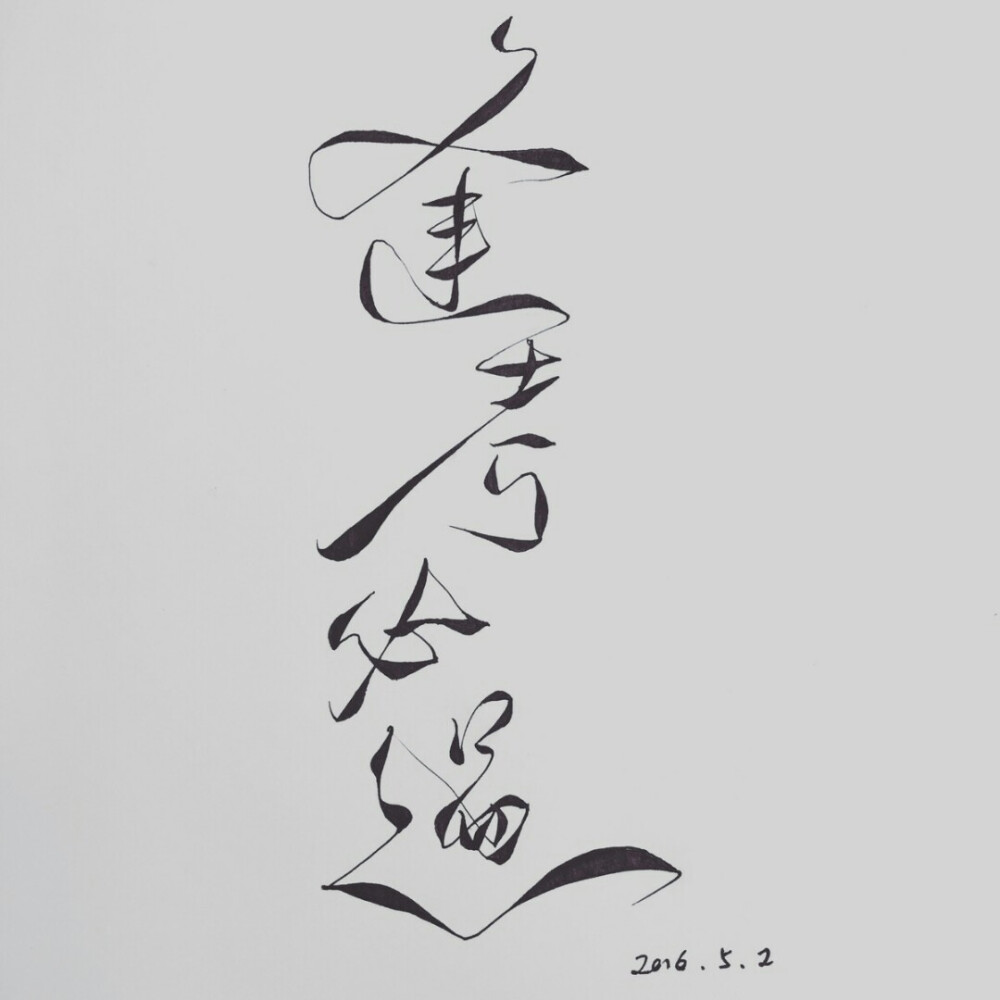 逢考必过
2016.5.2